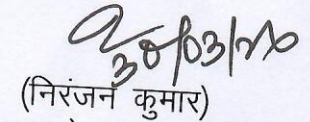 30/03/20
(निरंजन कुमार)